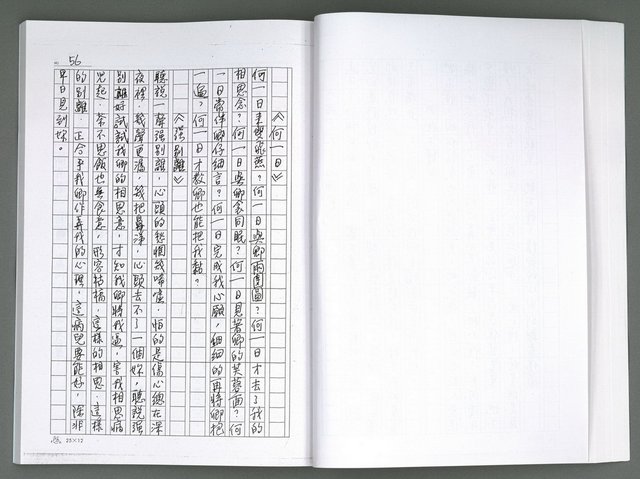 56
《何一日》
何一日來雙飛燕？何一日與卿兩團圓？何一日才去了我的
相思念？何一日與卿食同眠？何一日見著卿的芙蓉面？何
一日常伴卿仔細言？何一日完成我心願，細細的再將卿抱
一遍？何一日才教卿也能把我黏？
《強別離》
聽說一聲強別離，心頭的愁悶幾嘩噓，怕的是傷心總在深
夜裡，幾聲更漏，幾把暮淒，心頭去不了一個妳，聽說強
別離好試試我卿的相思意，才知我卿將我逼，害我相思病
兒起，茶不思飯也無食意，形容枯槁，這樣的相思，這樣
的別離，正合乎我卿作弄我的心理，這病兒要能好，除非
早日見到妳。
25×12